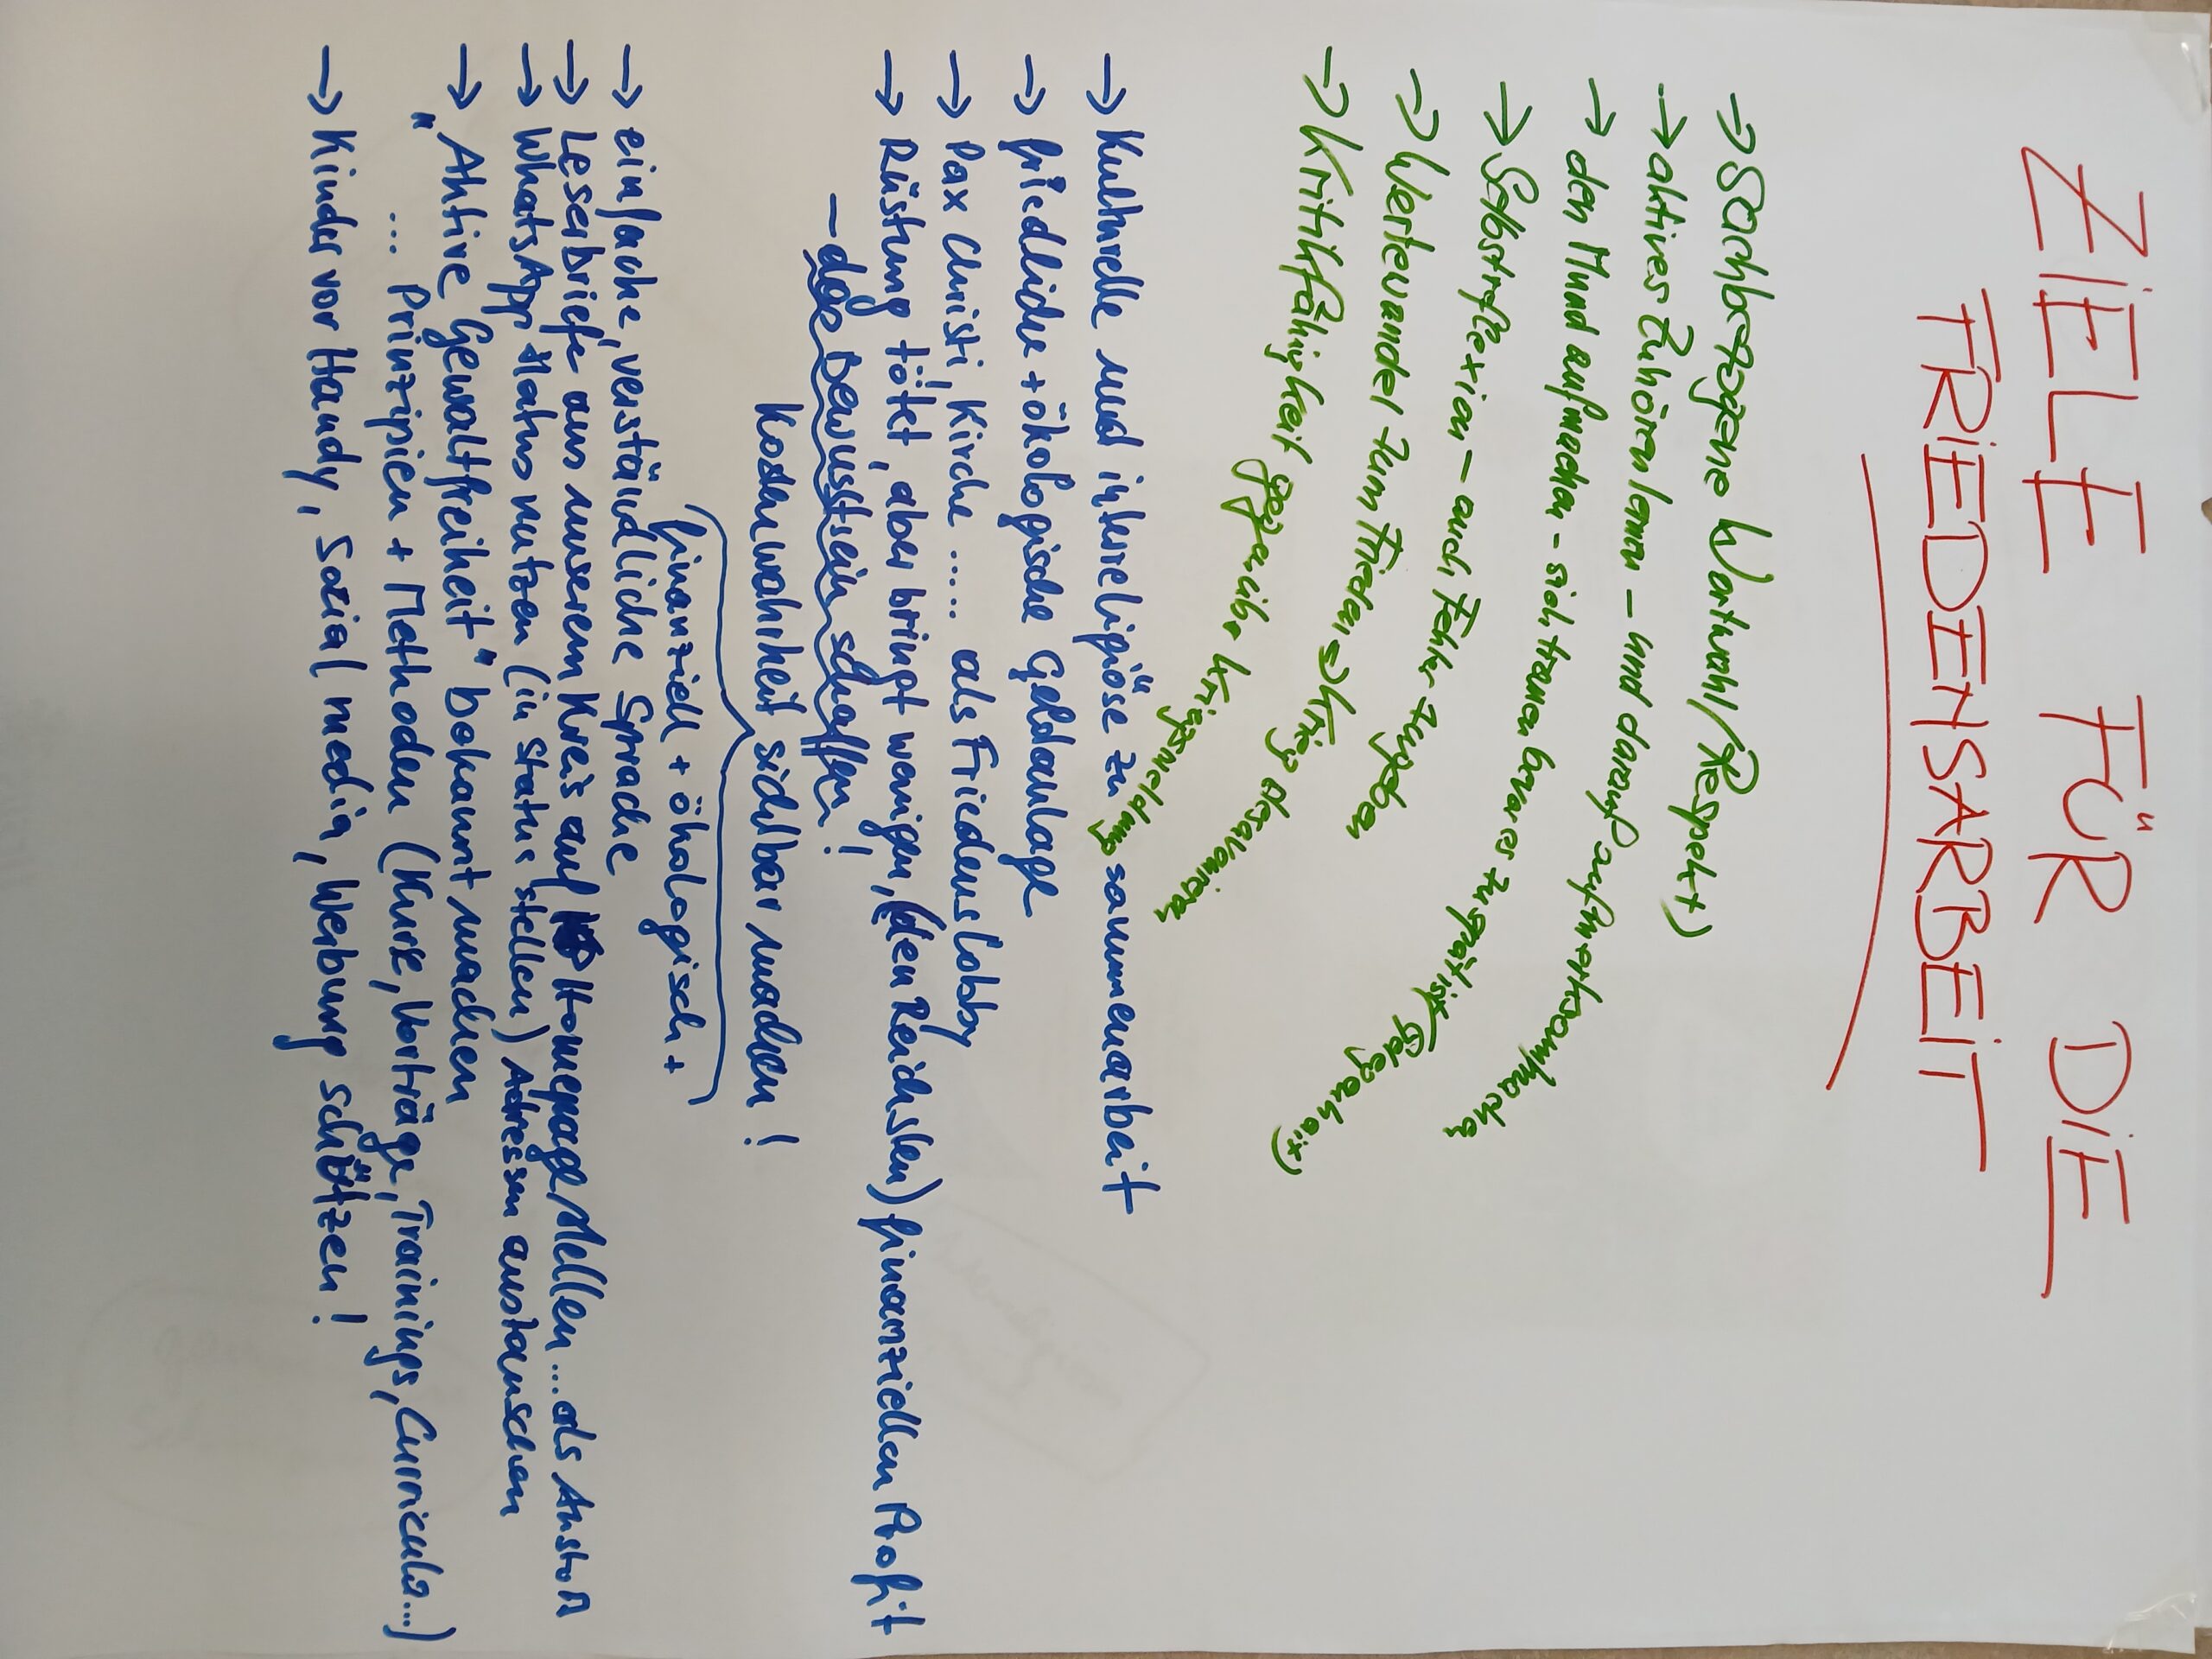 ZIELE FÜR DIE
FRiEDENSARBEiT
→ Sachbezogene Wortwahl (Respekt)
→ aktives Zuhören lernen – und darauf aufmerksam machen
→ den Mund aufmachen – sich trauen bevor es zu spät ist (Gegenhalt)
→ Selbstreflexion – auch Fehler zugeben
→ Wertewandel zum Frieden → Krieg
→ Kritikfähigkeit gegenüber Kriegsmeldung
→ Kulturelle und interreligiöse zusammenarbeit
→ friedliche + ökologische Geldanlage
→ Pax Christi, Kirche ..... als Friedenslobby
→ Rüstung tötet, aber bringt wenigen, (den Reichsten) finanziellen Profit
– das Bewusstsein schaffen!
Kostenwahrheit sichtbar machen!
finanziell + ökologisch +
→ einfache, verständliche Sprache
→ Leserbriefe aus unserem Kreis auf Homepage stellen... als Anstoß
→ WhatsApp status nutzen (in status stellen) Adressen austauschen
→ "Aktive Gewaltfreiheit" bekannt machen
... Prinzipien + Methoden (Kurse, Vorträge, Trainings, Curricula...)
→ Kinder vor Handy, Sozial media, Werbung schützen!